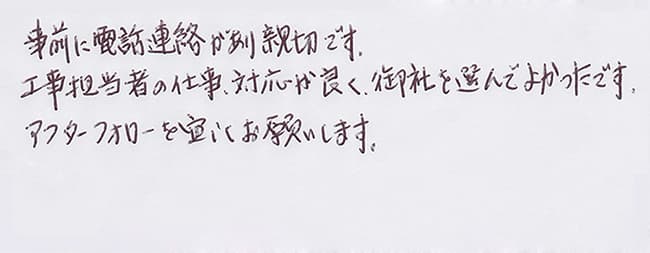 事前に電話連絡があり親切です。
工事担当者の仕事、対応が良く、御社を選んでよかったです。
アフターフォローを宜しくお願いします。